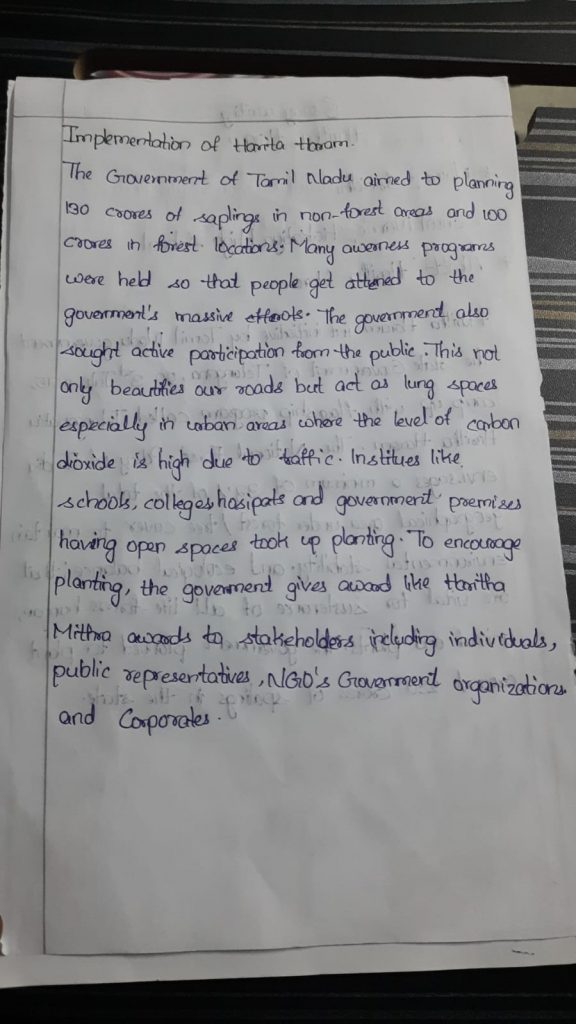 Implementation of Harita Haram.
The Government of Tamil Nadu aimed to planning
130 crores of saplings in non-forest areas and 100
crores in forest locations; Many awerness programs
were held so that people get attuned to the
goverment's massive effects. The government also
sought active participation from the public. This not
only beautifies our roads but act as lung spaces
especially in urban areas where the level of carbon
dioxide is high due to traffic. Institues like
schools, colleges, hosipats and government premises
having open spaces took up planting. To encourage
planting, the goverment gives award like Haritha
Mithra awards to stakeholders including individuals,
public representatives, NGO's Government organizations.
and Corporates.